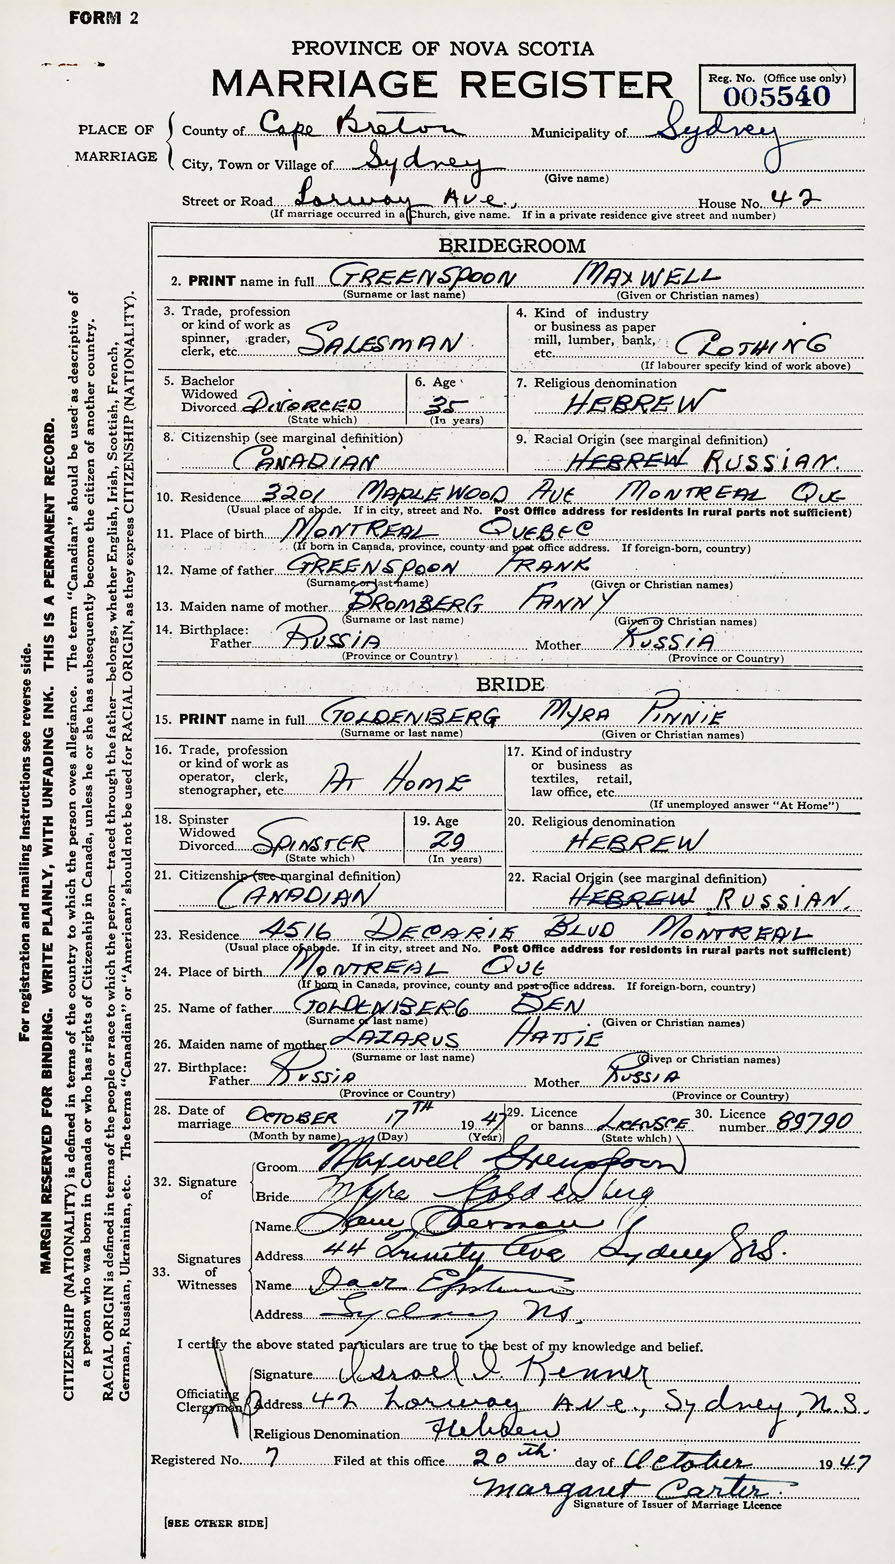 FORM 2
PROVINCE OF NOVA SCOTIA
MARRIAGE REGISTER
Reg. No. (Office use only)
005540
PLACE OF MARRIAGE
County of Cape Breton Municipality of Sydney
City, Town or Village of Sydney
(Give name)
Street or Road Lorway Ave., House No. 42
(If marriage occurred in a Church, give name. If in a private residence give street and number)
BRIDEGROOM
2. PRINT name in full GREENSPOON MAXWELL
(Surname or last name) (Given or Christian names)
3. Trade, profession or kind of work as spinner, grader, clerk, etc. SALESMAN
4. Kind of industry or business as paper mill, lumber, bank, etc. CLOTHING
(If labourer specify kind of work above)
5. Bachelor Widowed Divorced DIVORCED
(State which)
6. Age 35
(In years)
7. Religious denomination
HEBREW
8. Citizenship (see marginal definition)
CANADIAN
9. Racial Origin (see marginal definition)
HEBREW RUSSIAN.
10. Residence 3201 MAPLEWOOD AVE MONTREAL QUE
(Usual place of abode. If in city, street and No. Post Office address for residents in rural parts not sufficient)
11. Place of birth MONTREAL QUEBEC
(If born in Canada, province, county and post office address. If foreign-born, country)
12. Name of father GREENSPOON FRANK
(Surname or last name) (Given or Christian names)
13. Maiden name of mother BROMBERG FANNY
(Surname or last name) (Given or Christian names)
14. Birthplace: Father RUSSIA Mother RUSSIA
(Province or Country) (Province or Country)
BRIDE
15. PRINT name in full GOLDENBERG MYRA PINNIE
(Surname or last name) (Given or Christian names)
16. Trade, profession or kind of work as operator, clerk, stenographer, etc. AT HOME
17. Kind of industry or business as textiles, retail, law office, etc.
(If unemployed answer "At Home")
18. Spinster Widowed Divorced SPINSTER
(State which)
19. Age 29
(In years)
20. Religious denomination
HEBREW
21. Citizenship (see marginal definition)
CANADIAN
22. Racial Origin (see marginal definition)
HEBREW RUSSIAN.
23. Residence 4516 DECARIE BLVD MONTREAL
(Usual place of abode. If in city, street and No. Post Office address for residents in rural parts not sufficient)
24. Place of birth MONTREAL QUE
(If born in Canada, province, county and post office address. If foreign-born, country)
25. Name of father GOLDENBERG BEN
(Surname or last name) (Given or Christian names)
26. Maiden name of mother LAZARUS HATTIE
(Surname or last name) (Given or Christian names)
27. Birthplace: Father RUSSIA Mother RUSSIA
(Province or Country) (Province or Country)
28. Date of marriage OCTOBER 17TH 1947
(Month by name) (Day) (Year)
29. Licence or banns LICENSCE
(State which)
30. Licence number 89790
32. Signature of
Groom Maxwell Greenspoon
Bride Myra Goldenberg
33. Signatures of Witnesses
Name Sherman
Address 44 Trinity Ave Sydney N.S.
Name Epstein
Address Sydney NS.
I certify the above stated particulars are true to the best of my knowledge and belief.
Officiating Clergyman
Signature Israel I. Kenner
Address 42 Lorway Ave., Sydney, N.S.
Religious Denomination Hebrew
Registered No. 7 Filed at this office 20th day of October 1947
Margaret Carter.
Signature of Issuer of Marriage Licence
[SEE OTHER SIDE]
For registration and mailing instructions see reverse side.
MARGIN RESERVED FOR BINDING. WRITE PLAINLY, WITH UNFADING INK. THIS IS A PERMANENT RECORD.
CITIZENSHIP (NATIONALITY) is defined in terms of the country to which the person owes allegiance. The term "Canadian" should be used as descriptive of
a person who was born in Canada or who has rights of Citizenship in Canada, unless he or she has subsequently become the citizen of another country.
RACIAL ORIGIN is defined in terms of the people or race to which the person—traced through the father—belongs, whether English, Irish, Scottish, French,
German, Russian, Ukrainian, etc. The terms "Canadian" or "American" should not be used for RACIAL ORIGIN, as they express CITIZENSHIP (NATIONALITY).